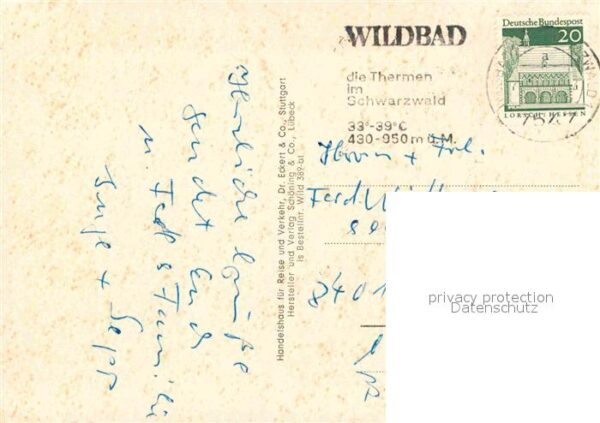 WILDBAD
die Thermen
im
Schwarzwald
33°-39°C
430-950 m ü.M.
Deutsche Bundespost
20
LORSCH / HESSEN
Herzliche Grüße
sendet Euch
u. Ferd & Familie
Inge + Sepp
Handelshaus für Reise und Verkehr, Dr. Eckert & Co., Stuttgart
Hersteller und Verlag Schöning & Co., Lübeck
is Bestellnr. Wild 389-bt
Herrn + Frl.
Ferd.
840
privacy protection
Datenschutz